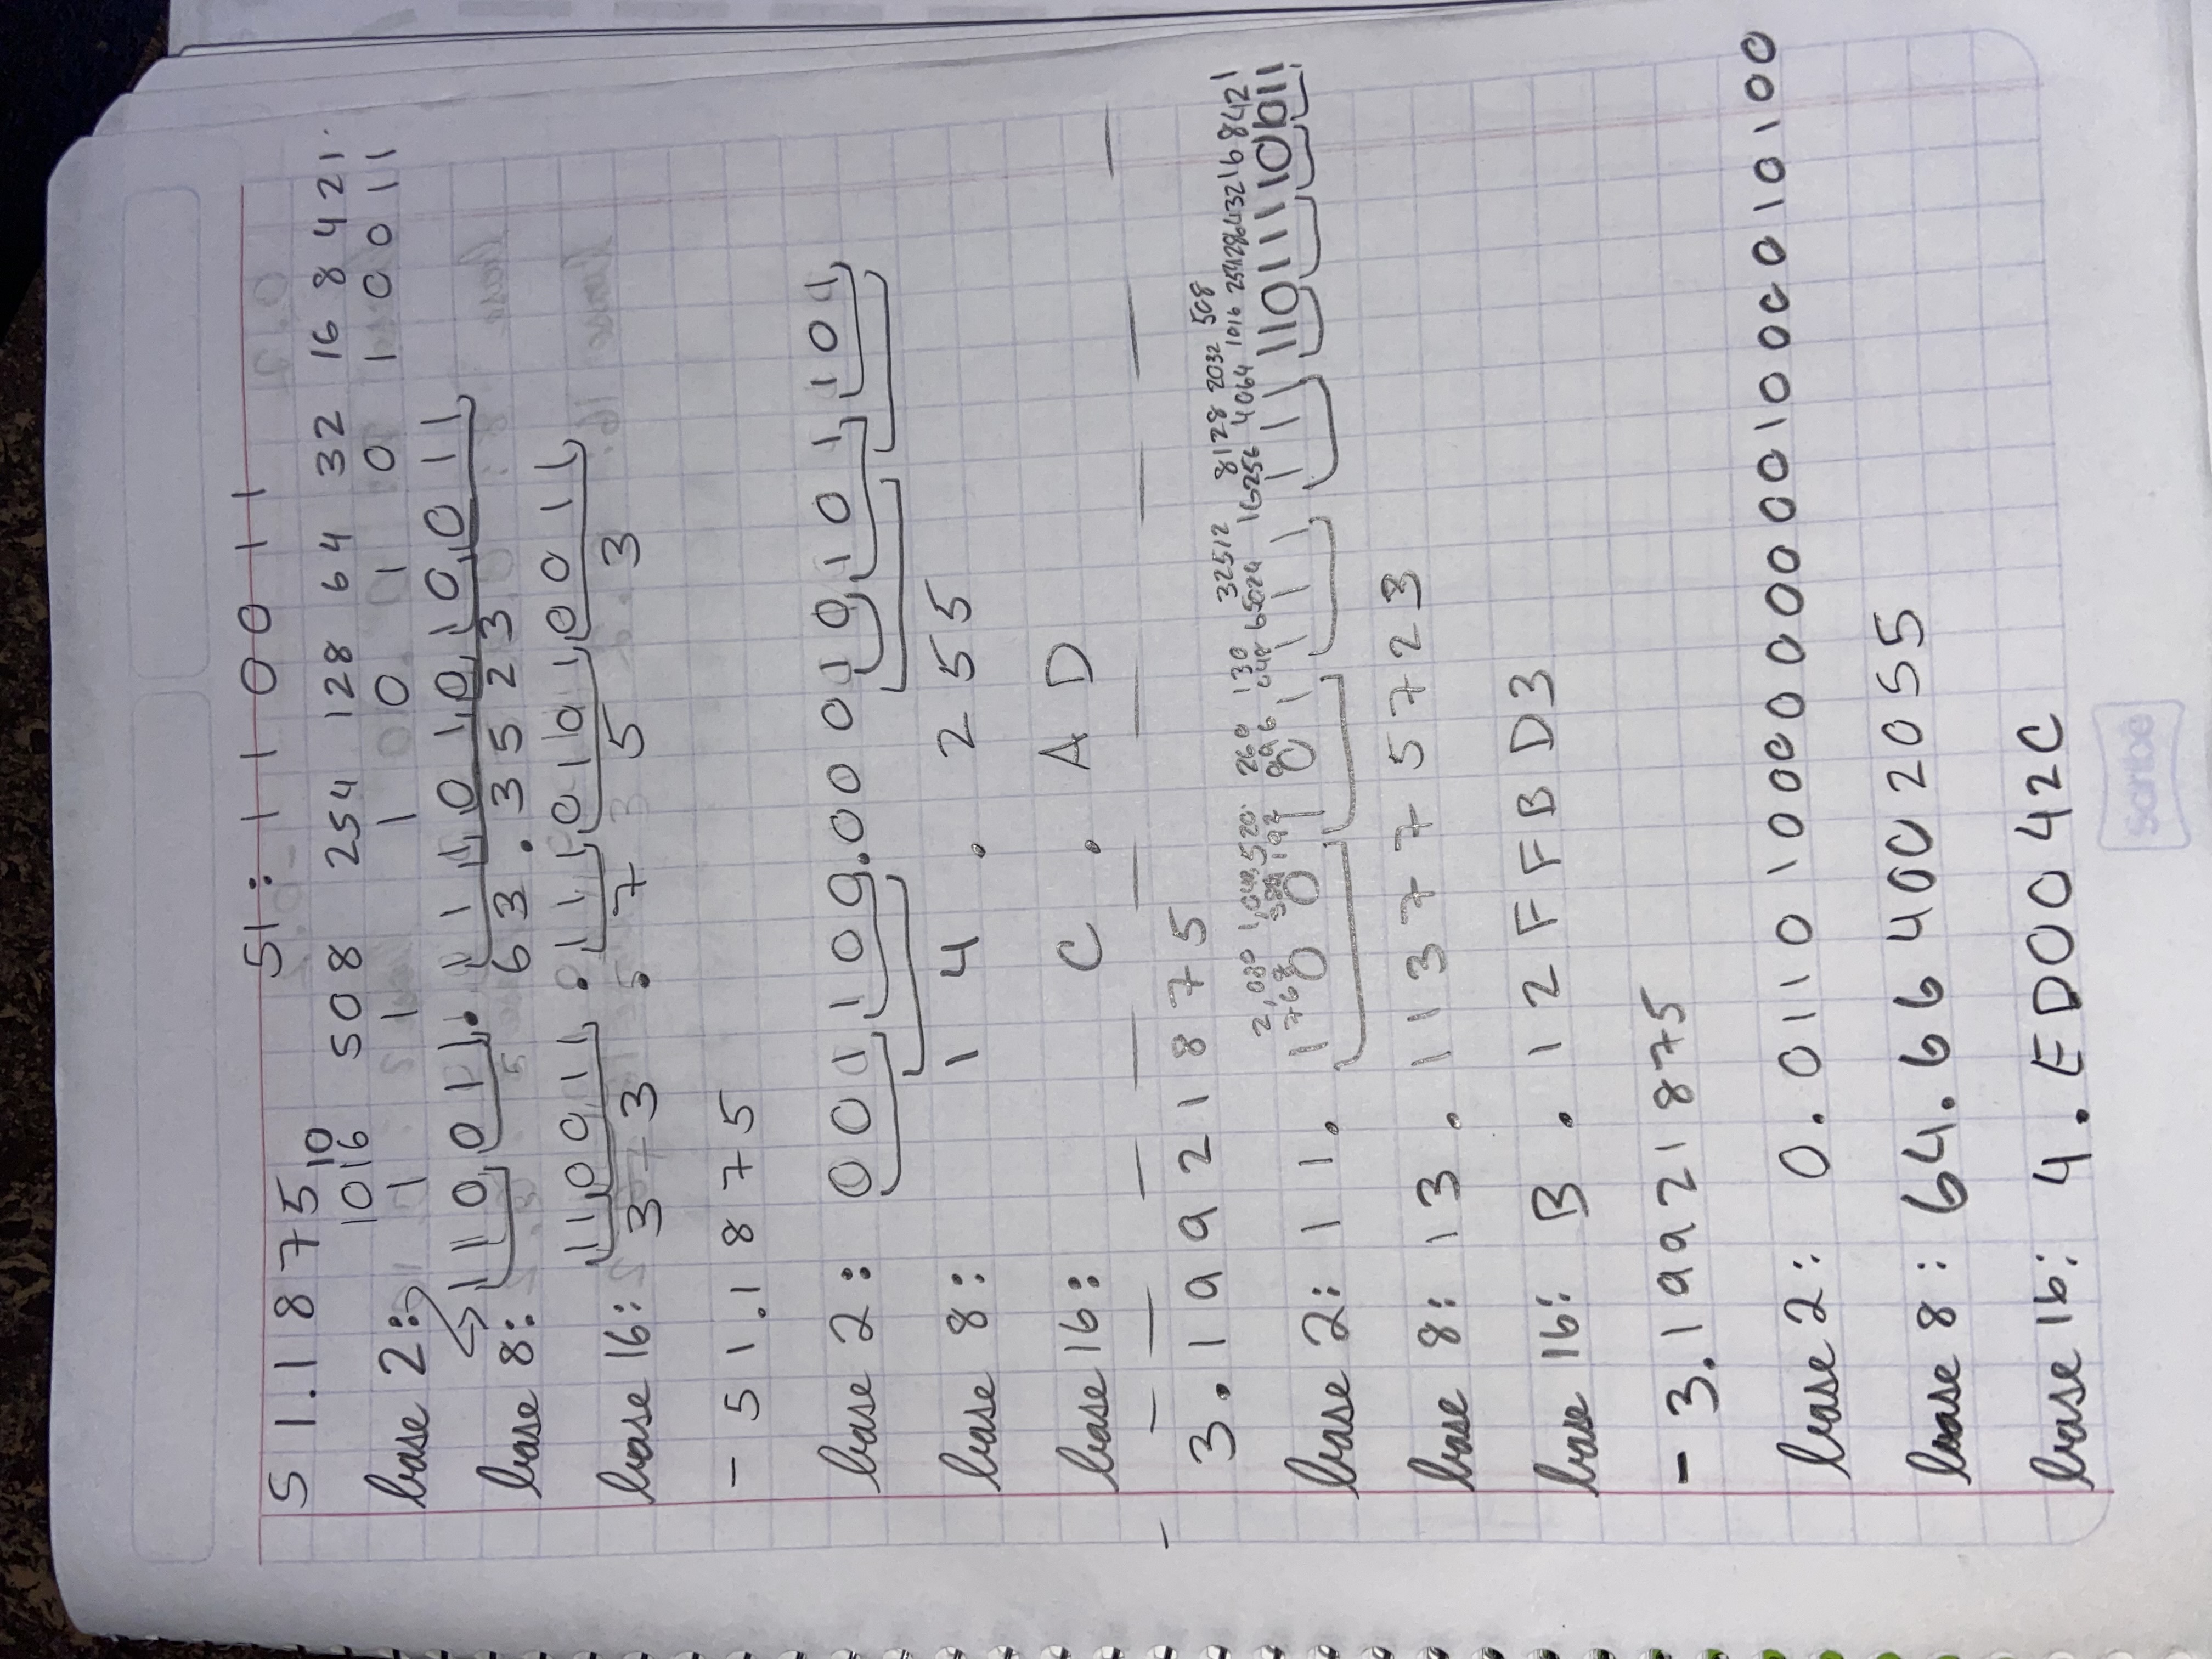 51: 110011
51.1875₁₀
1016 508 254 128 64 32 16 8 4 2 1
base 2: 1 1 1 0 1 0 1 0 0 1 1
110011.11101010011
base 8: 63.3523
110011.11101010011
base 16: 33.753
-51.1875
base 2: 001100.00010101101
base 8: 14.255
base 16: C.AD
3.19921875
32512 8128 2032 508
2,080 1,040 520 260 130 65024 16256 4064 1016 254 128 64 32 16 8 4 2 1
768 384 192 896 648
base 2: 11.100101111111110111101011
base 8: 13.113775723
base 16: B.12FFBD3
-3.19921875
base 2: 0.01101000000000100010100
base 8: 64.664002055
base 16: 4.ED0042C
Scribe